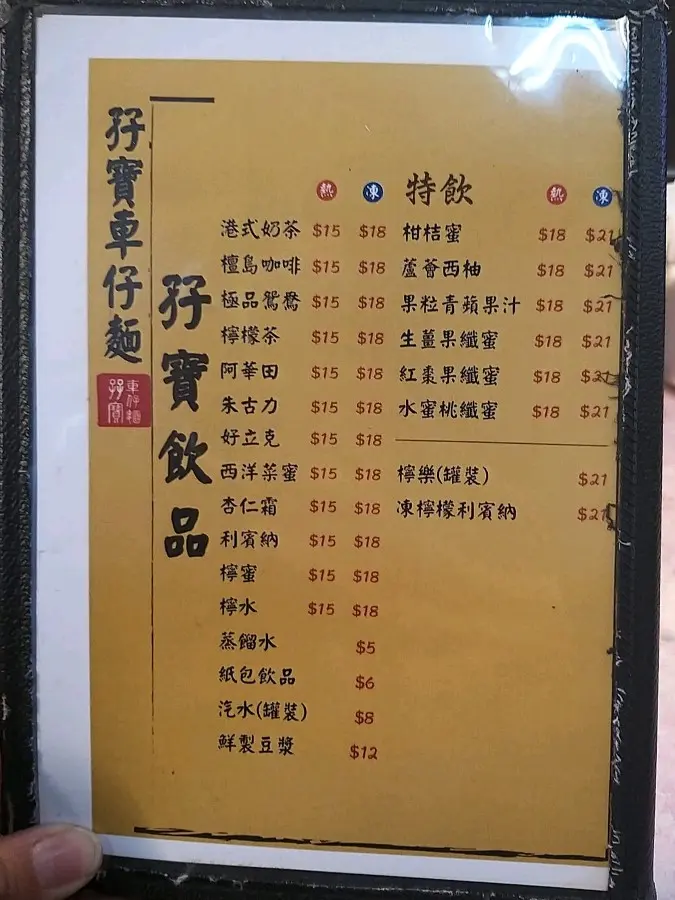 孖寶車仔麵
孖寶
車仔麵
孖寶飲品
熱 凍
港式奶茶 $15 $18
檀島咖啡 $15 $18
極品鴛鴦 $15 $18
檸檬茶 $15 $18
阿華田 $15 $18
朱古力 $15 $18
好立克 $15 $18
西洋菜蜜 $15 $18
杏仁霜 $15 $18
利賓納 $15 $18
檸蜜 $15 $18
檸水 $15 $18
蒸餾水 $5
紙包飲品 $6
汽水(罐裝) $8
鮮製豆漿 $12
特飲 熱 凍
柑桔蜜 $18 $21
蘆薈西柚 $18 $21
果粒青蘋果汁 $18 $21
生薑果纖蜜 $18 $21
紅棗果纖蜜 $18 $21
水蜜桃纖蜜 $18 $21
檸樂(罐裝) $21
凍檸檬利賓納 $21